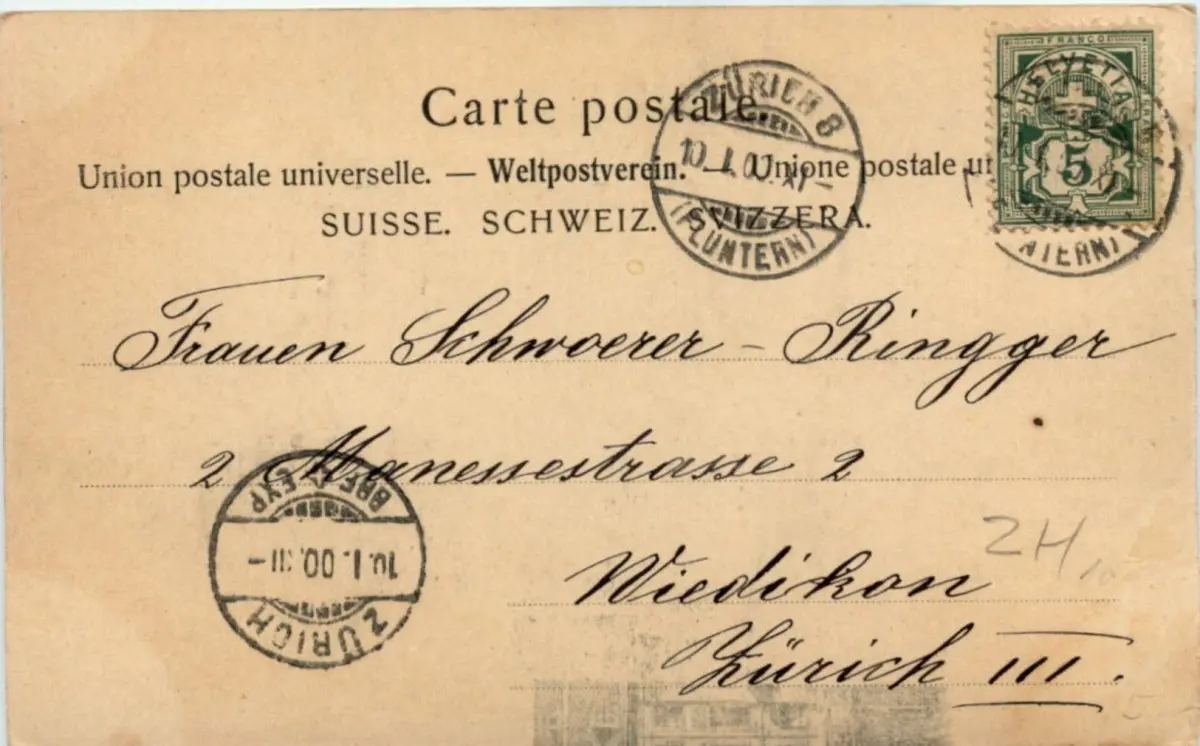 FRANCO
HELVETIA
5
Carte postale
ZÜRICH 8
10.I.00.XI–
(FLUNTERN)
Union postale universelle. — Weltpostverein. — Unione postale un
SUISSE. SCHWEIZ. SVIZZERA.
NTERN)
Frauen Schwoerer - Ringger
2 Manessestrasse 2
BRF. EXP
10.I.00.XII–
ZÜRICH
Wiedikon
ZH
10
Zürich III.
5